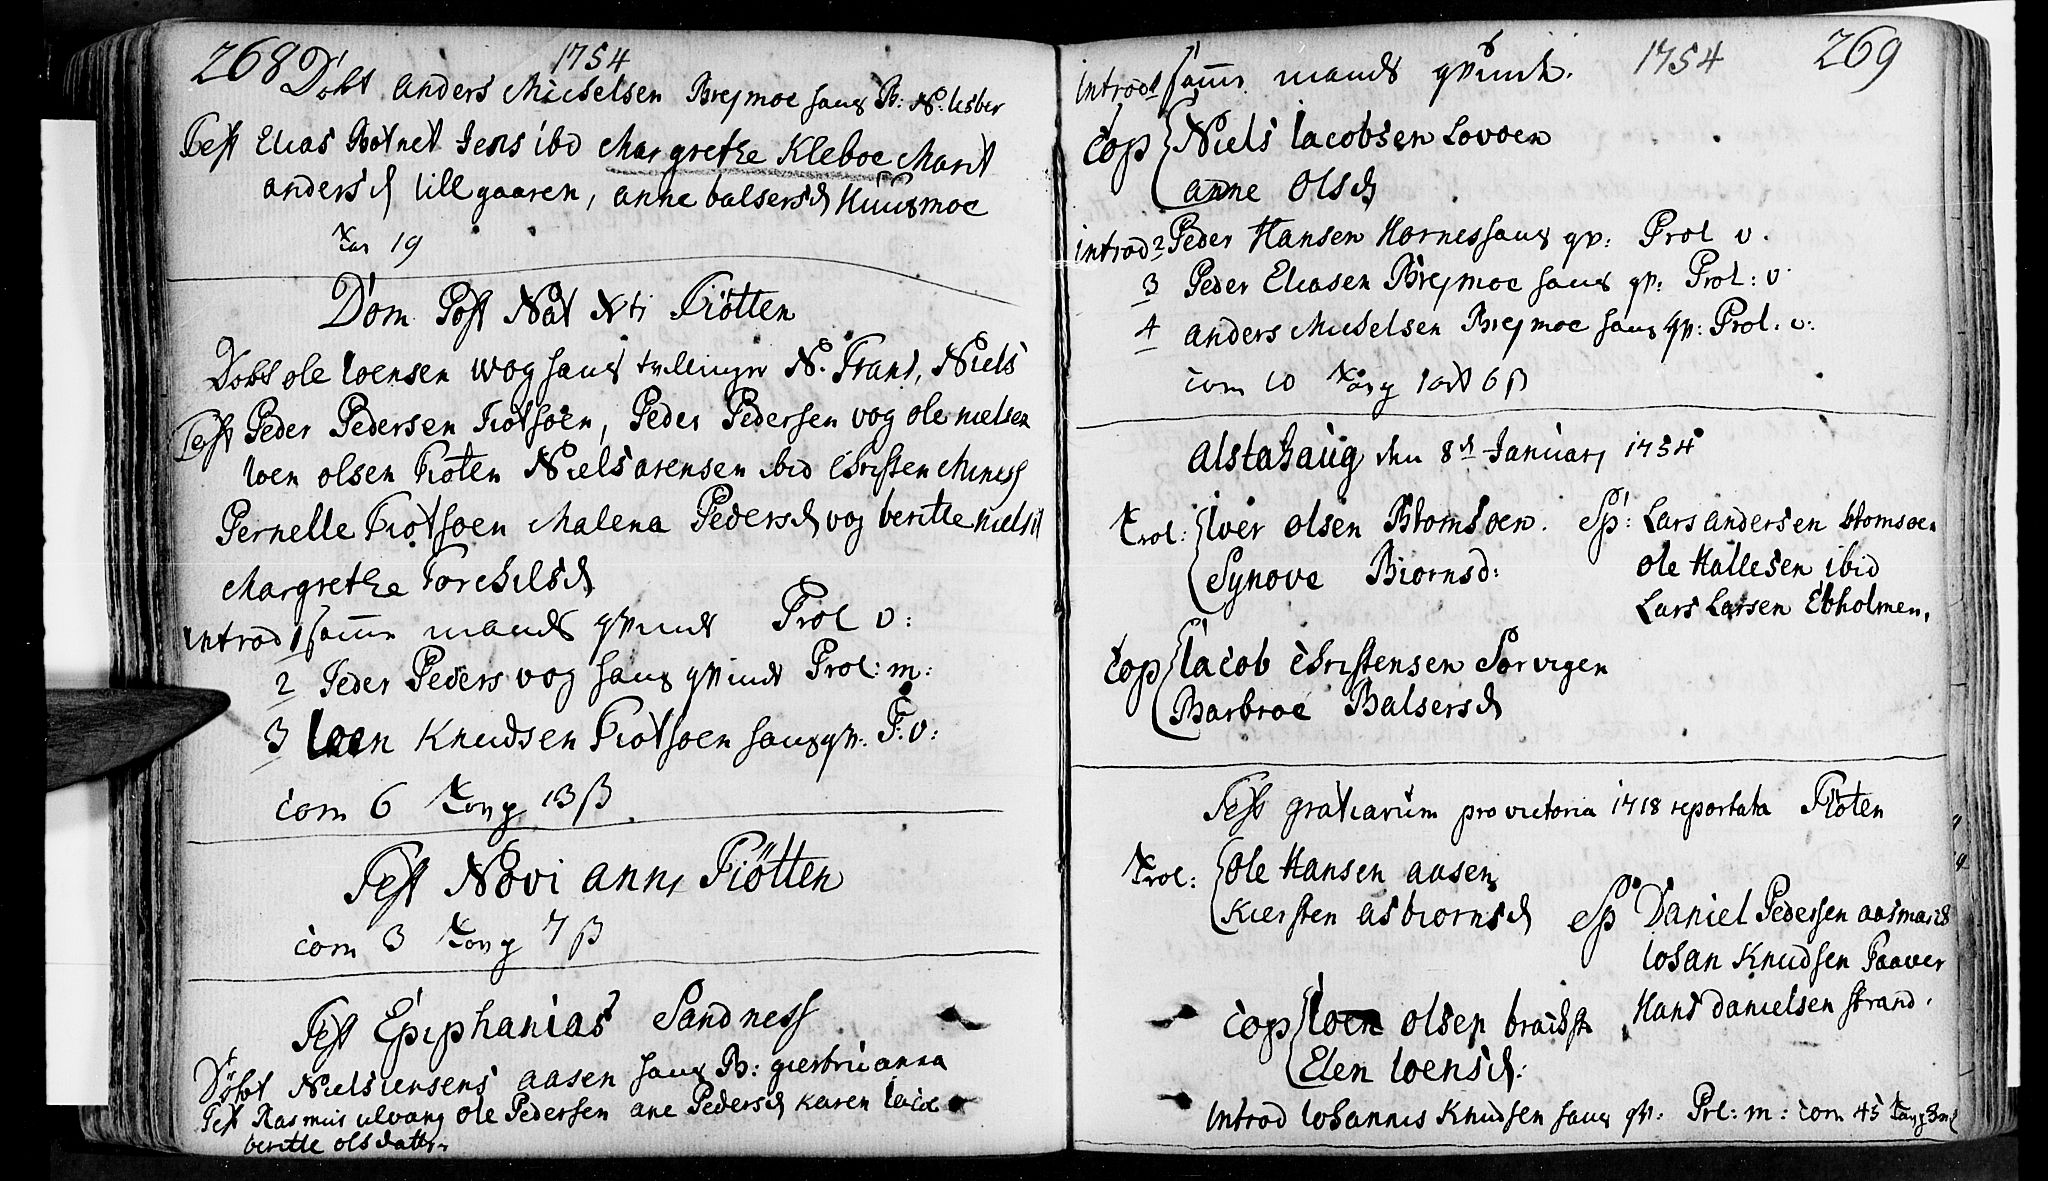 268 1754
Døbt anders Michelsen Breimoe hans B: N: lisber
Test Elias Botnet Jens ibd Margrethe Kleboe Marit
andersd lill gaaren, anne balsersd Huusmoe
19
Dom Post Nat Xti Tiøtten
Døbt ole loensen wog hans tvillinger N. Frans, Niels
Test Peder Pedersen Tiotsøen, Peder Pedersen vog ole nielsen
loen olsen Tioten Niels arensen ibid Christen
Pernelle Tiotsoen Malena Pedersd vog beritte nielsd
Margrethe Torchilsd
introd 1 samme mands qvinde Prol v:
2 Peder Peders vog hans qvinde Prol: m:
3 loen Knudsen Tiotsoen hans qv: P: v:
com 6 13 β
Fest Novi anni Tiötten
com 3 7 β
Fest Epiphanias Sandness
Døbt Niels iensens aasen hans B: giertrů anna
Test Rasmus ulvang ole Pedersen ane Pedersd karen
beritte olsdatter
1754 269
introd 1 samme mands qvinde.
cop Niels Iacobsen Lovoen
anne Olsd
introd 2 Peder Hansen Hornes hans qv: Prol v.
3 Peder Eliasen Breimoe hans qv: Prol: v.
4 anders Michelsen Breimoe hans qv: Prol: v:
com 10 1 ort 6 β
alstahaug den 8d Januarj 1754
Trol: Iver olsen Blomsoen. Sp: Lars andersen blomsoe
Synove Biornsd: ole Hallesen ibid
Lars Larsen Ebholmen.
cop Iacob Christensen Sorvigen
Barbroe Balsersd
Fest gratiarum pro victoria 1718 reportata Tiøten
Trol: Ole Hansen aasen
Kiersten asbiornsd Sp Daniel Pedersen aasmark
Iohan Knudsen Taaver
Hans danielsen strand.
cop loen olsen
Elen loensd:
Introd Iohannis Knudsen hans qv: Prl: m: com 45